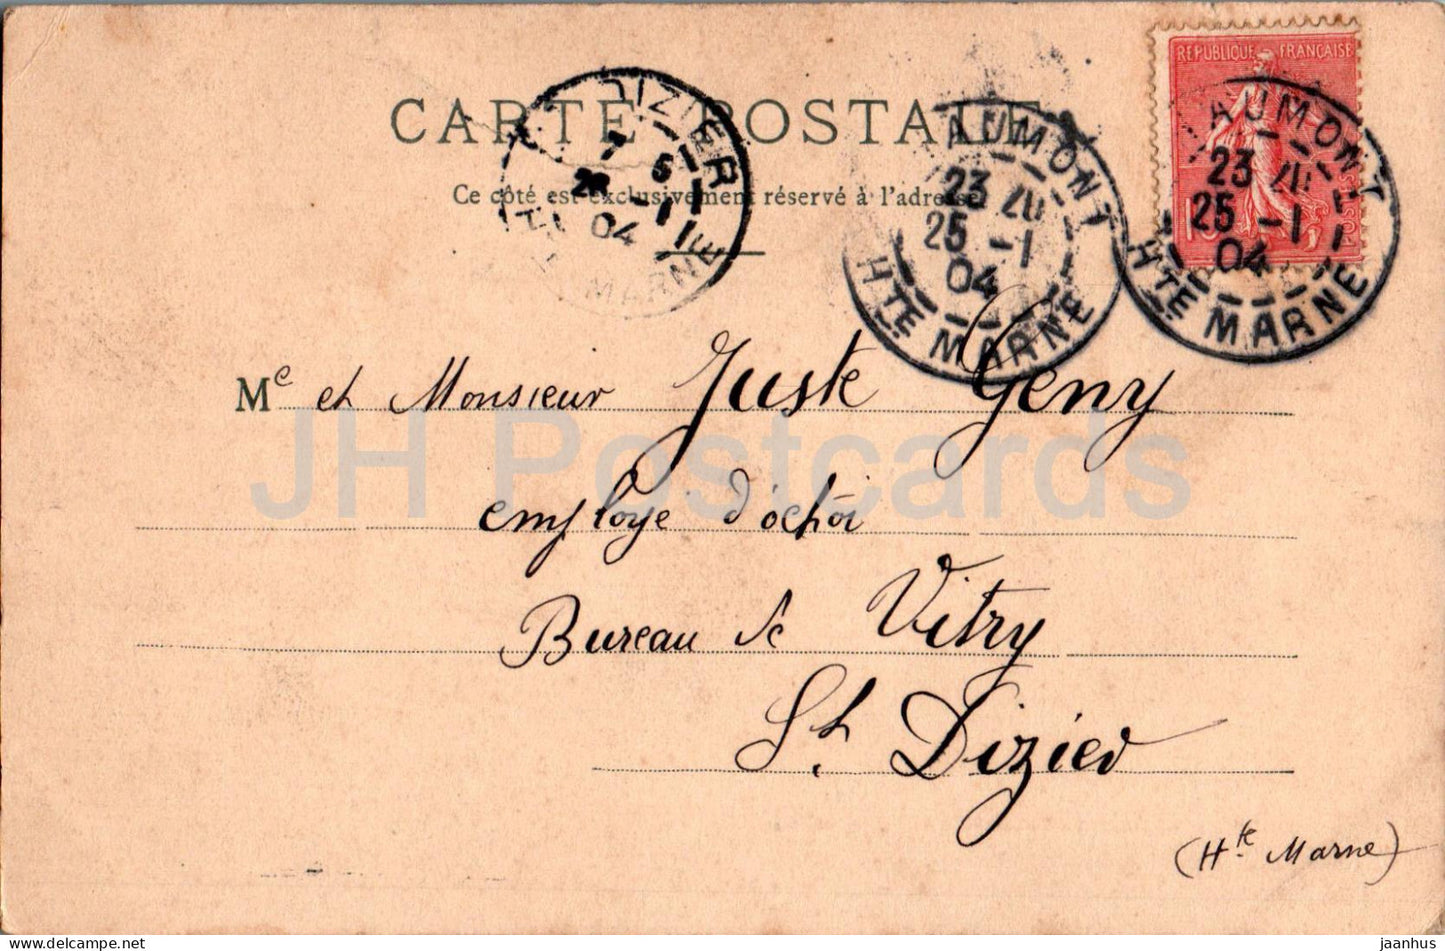 CARTE POSTALE
Ce côté est exclusivement réservé à l'adresse
REPUBLIQUE FRANÇAISE
DIZIER
7 6
26 -1
04
MARNE
AUMONT
23 40
25 -1
04
HTE MARNE
AUMONT
23 40
25 -1
04
HTE MARNE
Me et Monsieur Juste Geny
employe d'octroi
Bureau de Vitry
St. Dizier
(Hte Marne)
JH Postcards
jaanhus delcampe.net